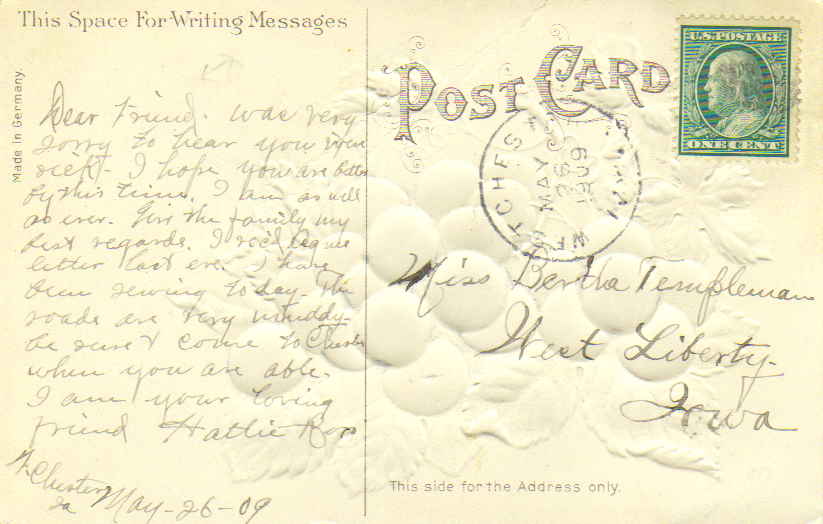 This Space For Writing Messages
Made in Germany.
Dear Friend. Was very
sorry to hear you were
sick. I hope you are better
by this time. I am as well
as ever. Give the family my
best regards. I rec'd
letter last eve. I have
been sewing today. The
roads are very muddy.
be sure & come to Chester
when you are able.
I am your loving
friend Hattie
W. Chester
Ia May-26-09
POST CARD
U.S. POSTAGE
ONE CENT
WEST CHESTER
MAY
26
1909
IOWA
Miss Bertha Templeman
West Liberty.
Iowa
This side for the Address only.